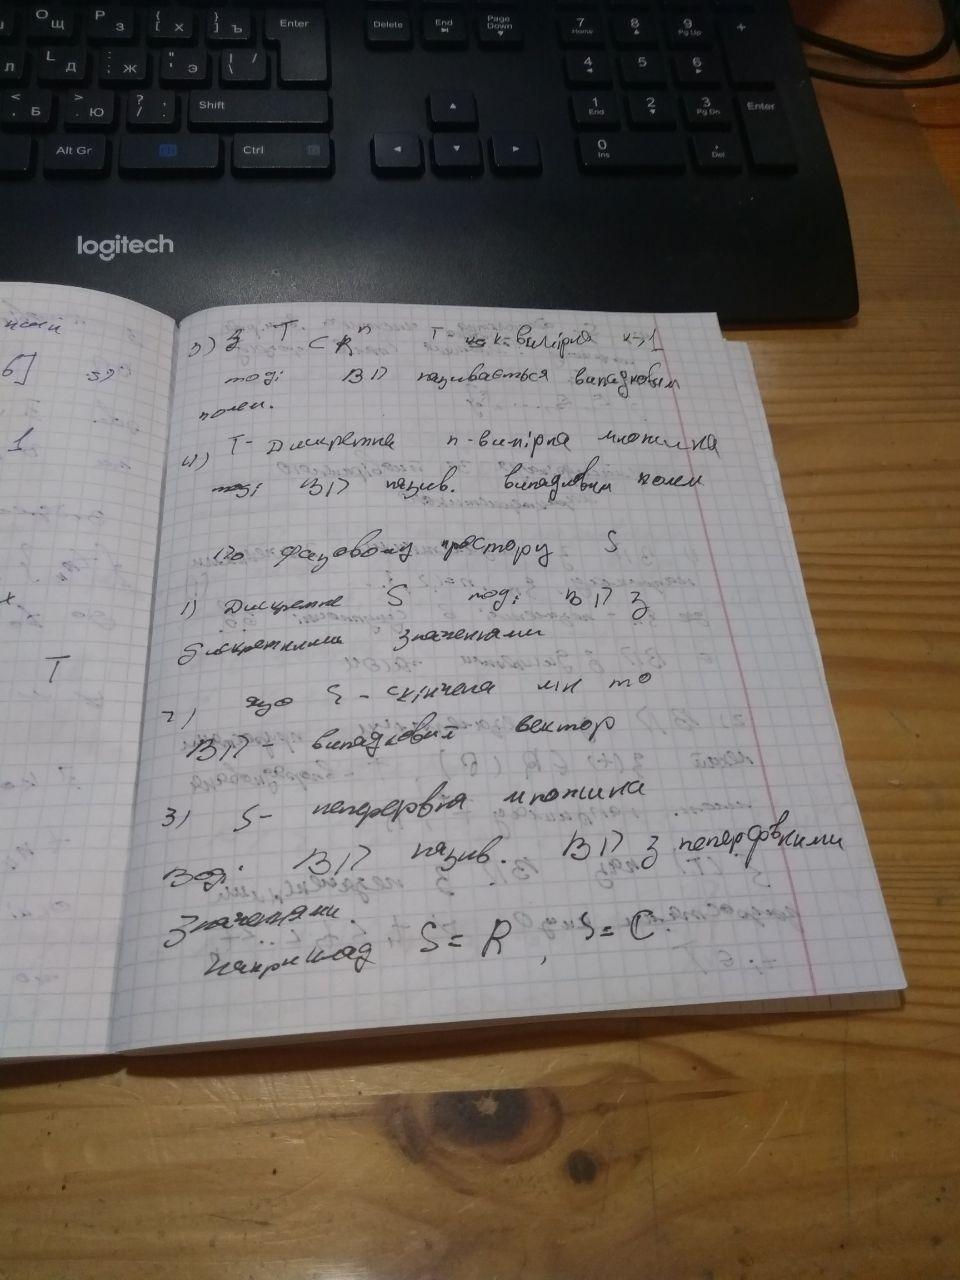 Щ
Р З
{ [ Х
} ] Ъ
Enter
Delete
End
Page Down
7 Home
8
9 Pg Up
+
Л
L Д
: ; Ж
" ' Э
| \ /
4
5
6
< , Б
> . Ю
? / .
Shift
1 End
2
3 Pg Dn
Enter
Alt Gr
Ctrl
0 Ins
. Del
logitech
3) З T ⊂ Rⁿ T - к-вимірна к>1
тоді ВП називається випадковим
полем.
4) T - Дискретна n-вимірна множина
тоді ВП назив. випадковим полем
По фазовому простору S
1) Дискретне S тоді ВП з
дискретними значеннями
2) якщо S - скінчена мн то
ВП - випадковий вектор
3) S - неперервна множина
тоді ВП назив. ВП з неперервними
значеннями.
Наприклад S = R, S = C
6]
1
T